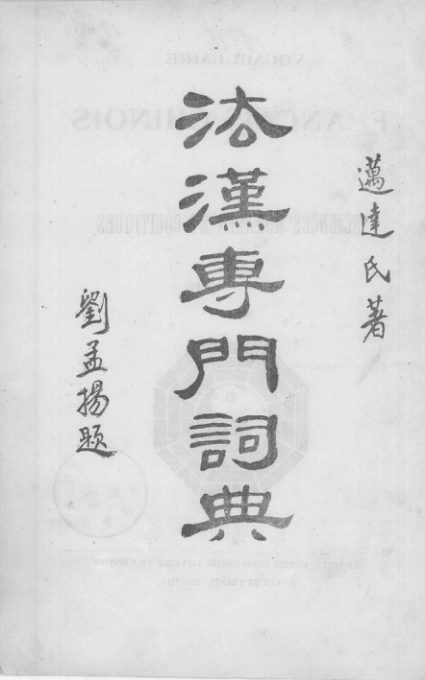 邁達氏著
法漢專門詞典
劉孟揚題